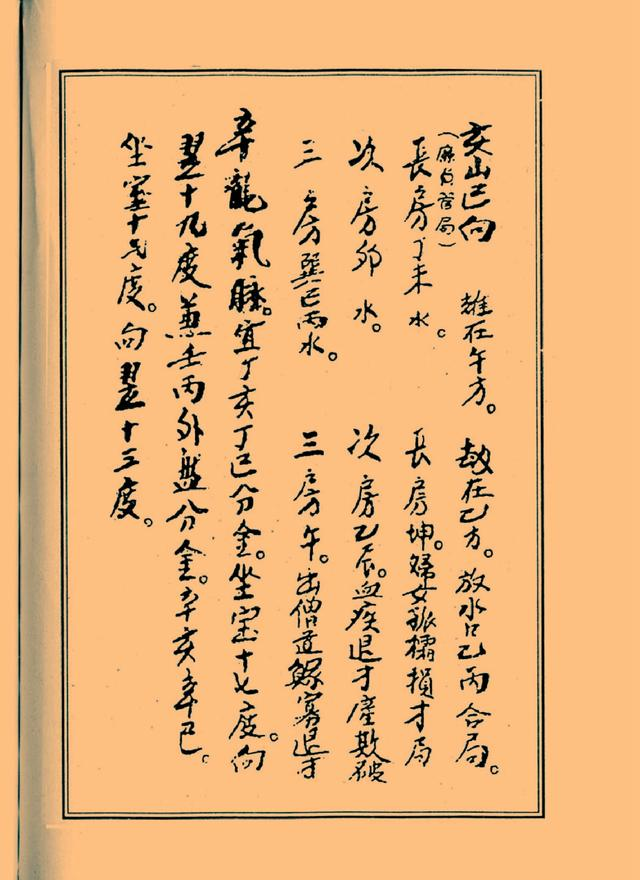 亥山巳向　雄在午方。劫在乙方。放水口乙丙合局。
（廉貞登局）
長房丁未水。　長房坤。婦女敗橘損才局
次房卯水。　次房乙辰。血疾退才產欺破
三房巽巳丙水。　三房午。出僧道鰥寡退才
辛龍氣脉。宜丁亥丁巳分金。坐室十七度。向
翌十九度兼壬丙外盤分金。辛亥辛巳。
坐室十七度。向翌十三度。